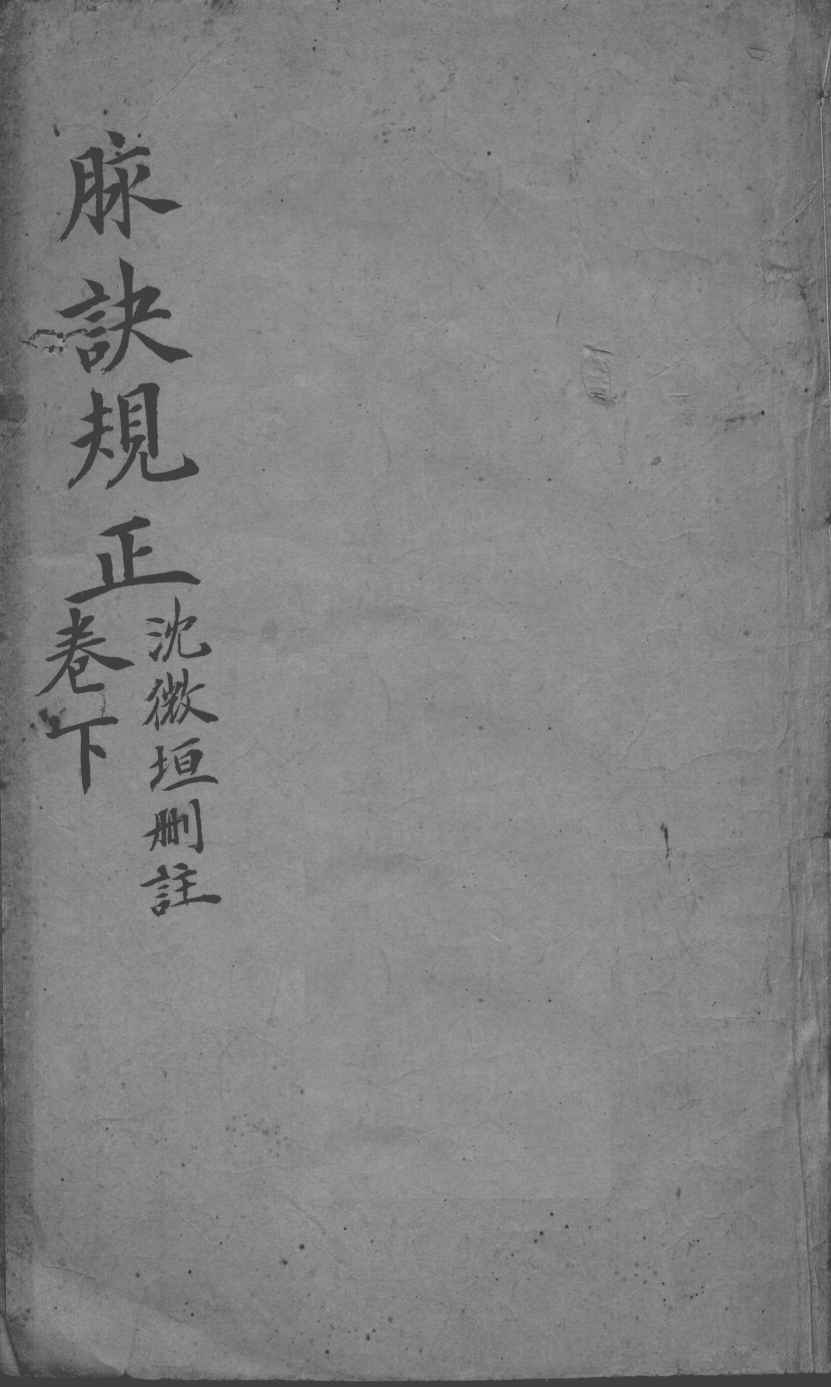 脉訣規正
沈微垣刪註
卷下